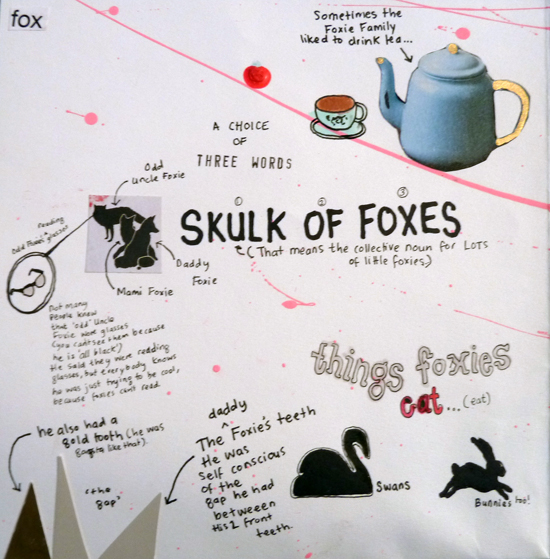 fox
Sometimes the
Foxie Family
liked to drink tea...
A CHOICE
OF
THREE WORDS
Odd
Uncle Foxie
Reading
Odd Foxies glasses
① ② ③
SKULK OF FOXES
(That means the collective noun for LOTS
of little foxies)
Daddy
Foxie
Mami Foxie
Not many
people knew
that 'odd' Uncle
Foxie wore glasses
(you can't see them because
he is 'all black')
He said they were reading
glasses, but everybody knows
he was just trying to be cool,
because foxies can't read.
things foxies
eat... (eat)
he also had a
gold tooth (he was
like that).
'the
gap'
daddy
The Foxie's teeth
He was
self conscious
of the
gap he had
betweeen
His 2 front
teeth.
Swans
Bunnies too!